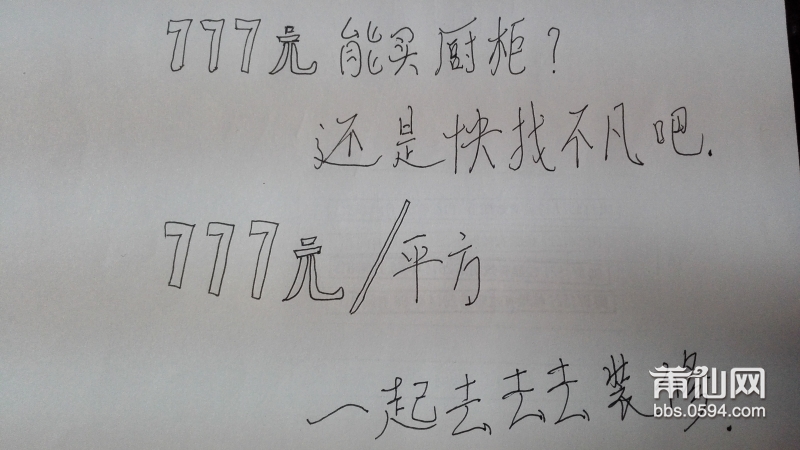 777元能买厨柜?
还是快找不凡吧.
777元/平方
一起去去去装修.
莆仙网
bbs.0594.com